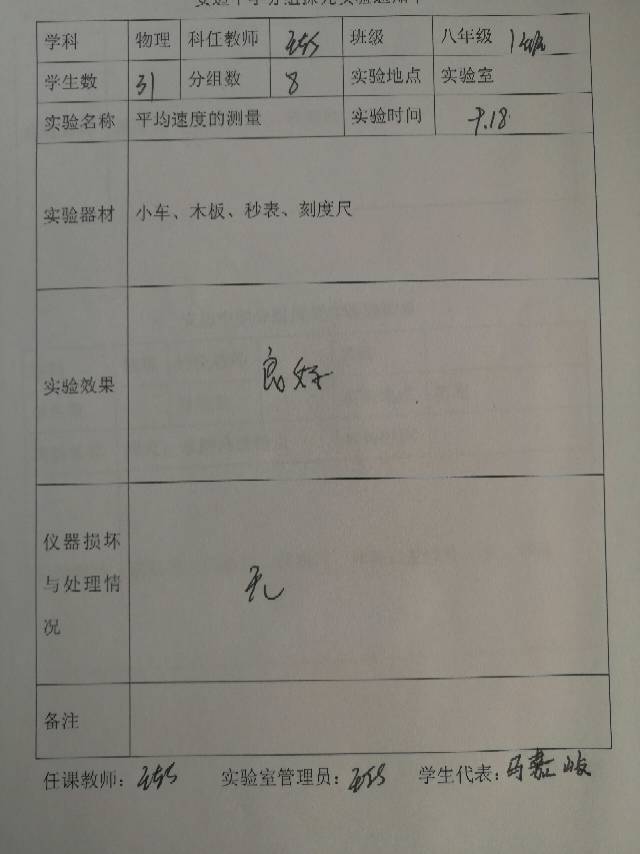 学科 物理 科任教师 班级 八年级 1班
学生数 31 分组数 8 实验地点 实验室
实验名称 平均速度的测量 实验时间 9.18
实验器材 小车、木板、秒表、刻度尺
实验效果 良好
仪器损坏
与处理情 无
况
备注
任课教师: 实验室管理员: 学生代表: